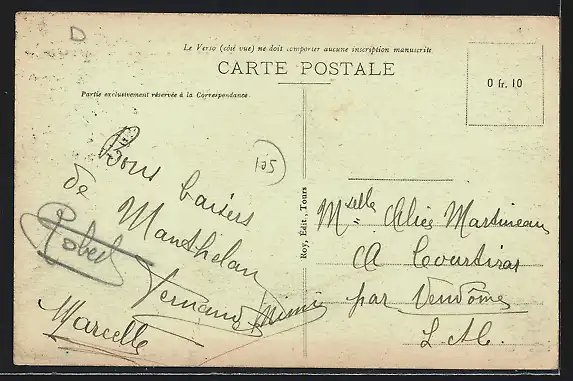 D
Le Verso (côté vue) ne doit comporter aucune inscription manuscrite
CARTE POSTALE
Partie exclusivement réservée à la Correspondance.
0 fr. 10
105
Bons baisers
de Manthelan
Robert
Fernand Mimi
Marcelle
Roy, Édit., Tours
Mselle Alice Martineau
A Courtiras
par Vendôme
L. &